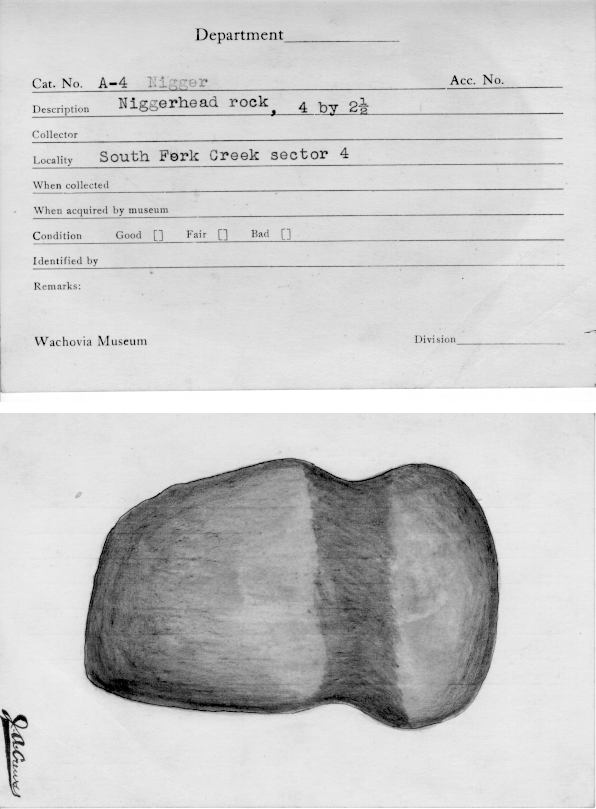 Department
Cat. No. A-4 Nigger Acc. No.
Description Niggerhead rock, 4 by 2½
Collector
Locality South Fork Creek sector 4
When collected
When acquired by museum
Condition Good [] Fair [] Bad []
Identified by
Remarks:
Wachovia Museum Division